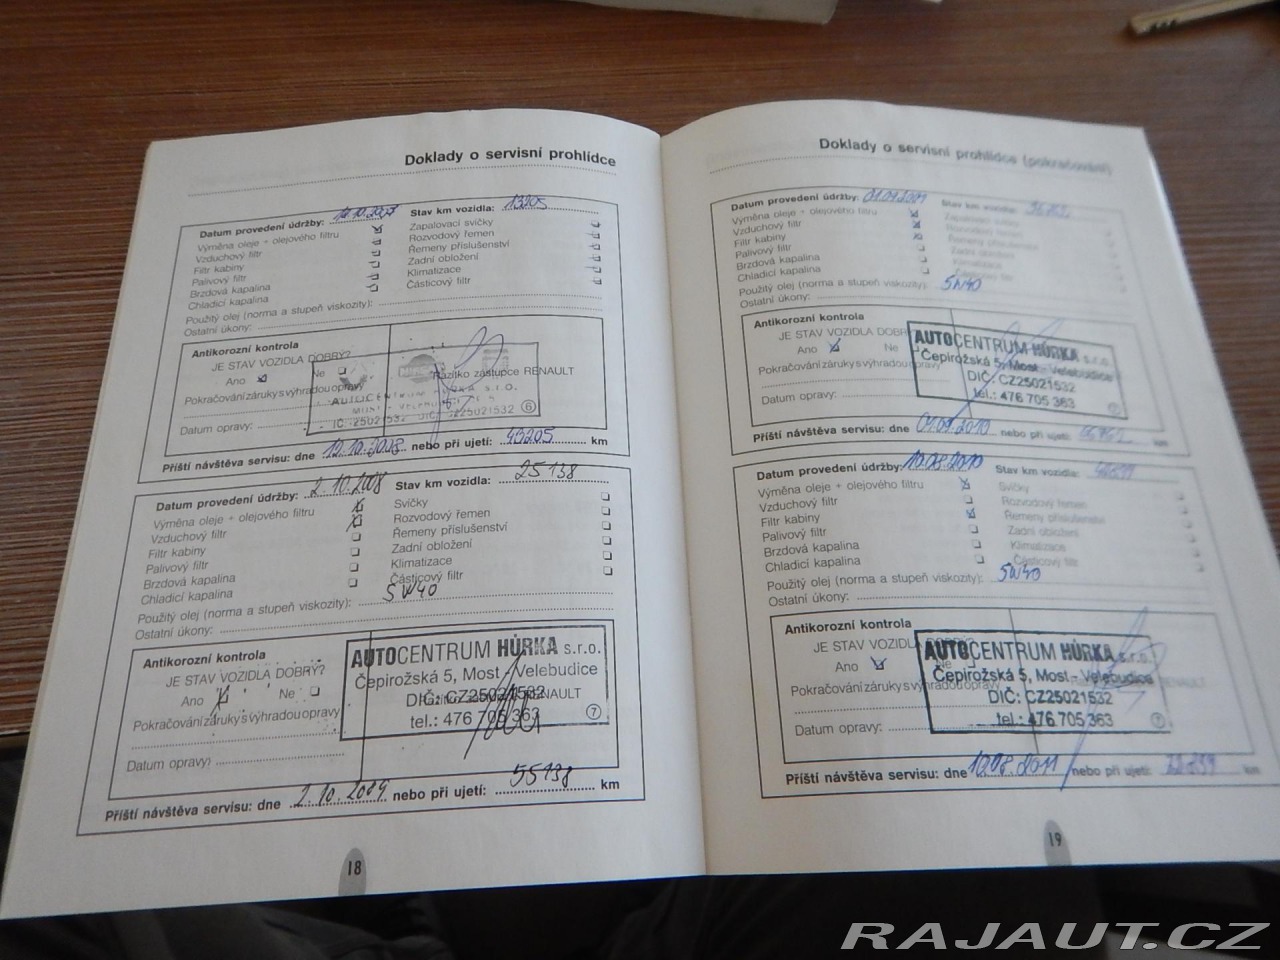 Doklady o servisní prohlídce
Datum provedení údržby: 12.10.2007 Stav km vozidla: 13205
Výměna oleje + olejového filtru Zapalovací svíčky
Vzduchový filtr Rozvodový řemen
Filtr kabiny Řemeny příslušenství
Palivový filtr Zadní obložení
Brzdová kapalina Klimatizace
Chladící kapalina Částicový filtr
Použitý olej (norma a stupeň viskozity):
Ostatní úkony:
Antikorozní kontrola
JE STAV VOZIDLA DOBRÝ?
Ano Ne
Razítko zástupce RENAULT
Pokračování záruky s výhradou opravy
AUTOCENTRUM HŮRKA S.R.O.
MOST - VELEBUDICE
IČ: 25021532 DIČ: CZ25021532 6
Datum opravy:
Příští návštěva servisu: dne 12.10.2008 nebo při ujetí: 43205 km
Datum provedení údržby: 2.10.2008 Stav km vozidla: 25138
Výměna oleje + olejového filtru Svíčky
Vzduchový filtr Rozvodový řemen
Filtr kabiny Řemeny příslušenství
Palivový filtr Zadní obložení
Brzdová kapalina Klimatizace
Chladící kapalina Částicový filtr
Použitý olej (norma a stupeň viskozity): 5W40
Ostatní úkony:
Antikorozní kontrola
JE STAV VOZIDLA DOBRÝ?
Ano Ne
Pokračování záruky s výhradou opravy
Datum opravy:
AUTOCENTRUM HŮRKA s.r.o.
Čepirožská 5, Most - Velebudice
DIČ: CZ25021532
RENAULT
tel.: 476 705 363 7
Příští návštěva servisu: dne 2.10.2009 nebo při ujetí: 55138 km
18
Doklady o servisní prohlídce (pokračování)
Datum provedení údržby: Stav km vozidla:
Výměna oleje + olejového filtru Zapalovací svíčky
Vzduchový filtr Rozvodový řemen
Filtr kabiny Řemeny příslušenství
Palivový filtr Zadní obložení
Brzdová kapalina Klimatizace
Chladící kapalina Částicový filtr
Použitý olej (norma a stupeň viskozity): 5W40
Ostatní úkony:
Antikorozní kontrola
JE STAV VOZIDLA DOBR
Ano Ne
Pokračování záruky s výhradou opravy
Datum opravy:
AUTOCENTRUM HŮRKA s.r.o.
Čepirožská 5, Most - Velebudice
DIČ: CZ25021532
tel.: 476 705 363
Příští návštěva servisu: dne 01.09.2010 nebo při ujetí: km
Datum provedení údržby: 10.08.2010 Stav km vozidla:
Výměna oleje + olejového filtru Svíčky
Vzduchový filtr Rozvodový řemen
Filtr kabiny Řemeny příslušenství
Palivový filtr Zadní obložení
Brzdová kapalina Klimatizace
Chladící kapalina Částicový filtr
Použitý olej (norma a stupeň viskozity): 5W40
Ostatní úkony:
Antikorozní kontrola
JE STAV VOZIDLA DOBRÝ?
Ano Ne
Pokračování záruky s výhradou opravy
Datum opravy:
AUTOCENTRUM HŮRKA s.r.o.
Čepirožská 5, Most - Velebudice
DIČ: CZ25021532
tel.: 476 705 363
Příští návštěva servisu: dne 10.08.2011 nebo při ujetí: km
19
RAJAUT.CZ